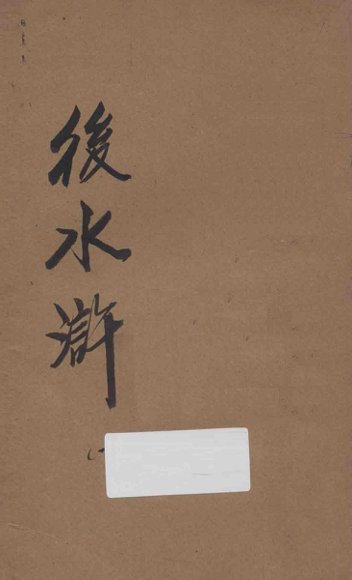 後水滸